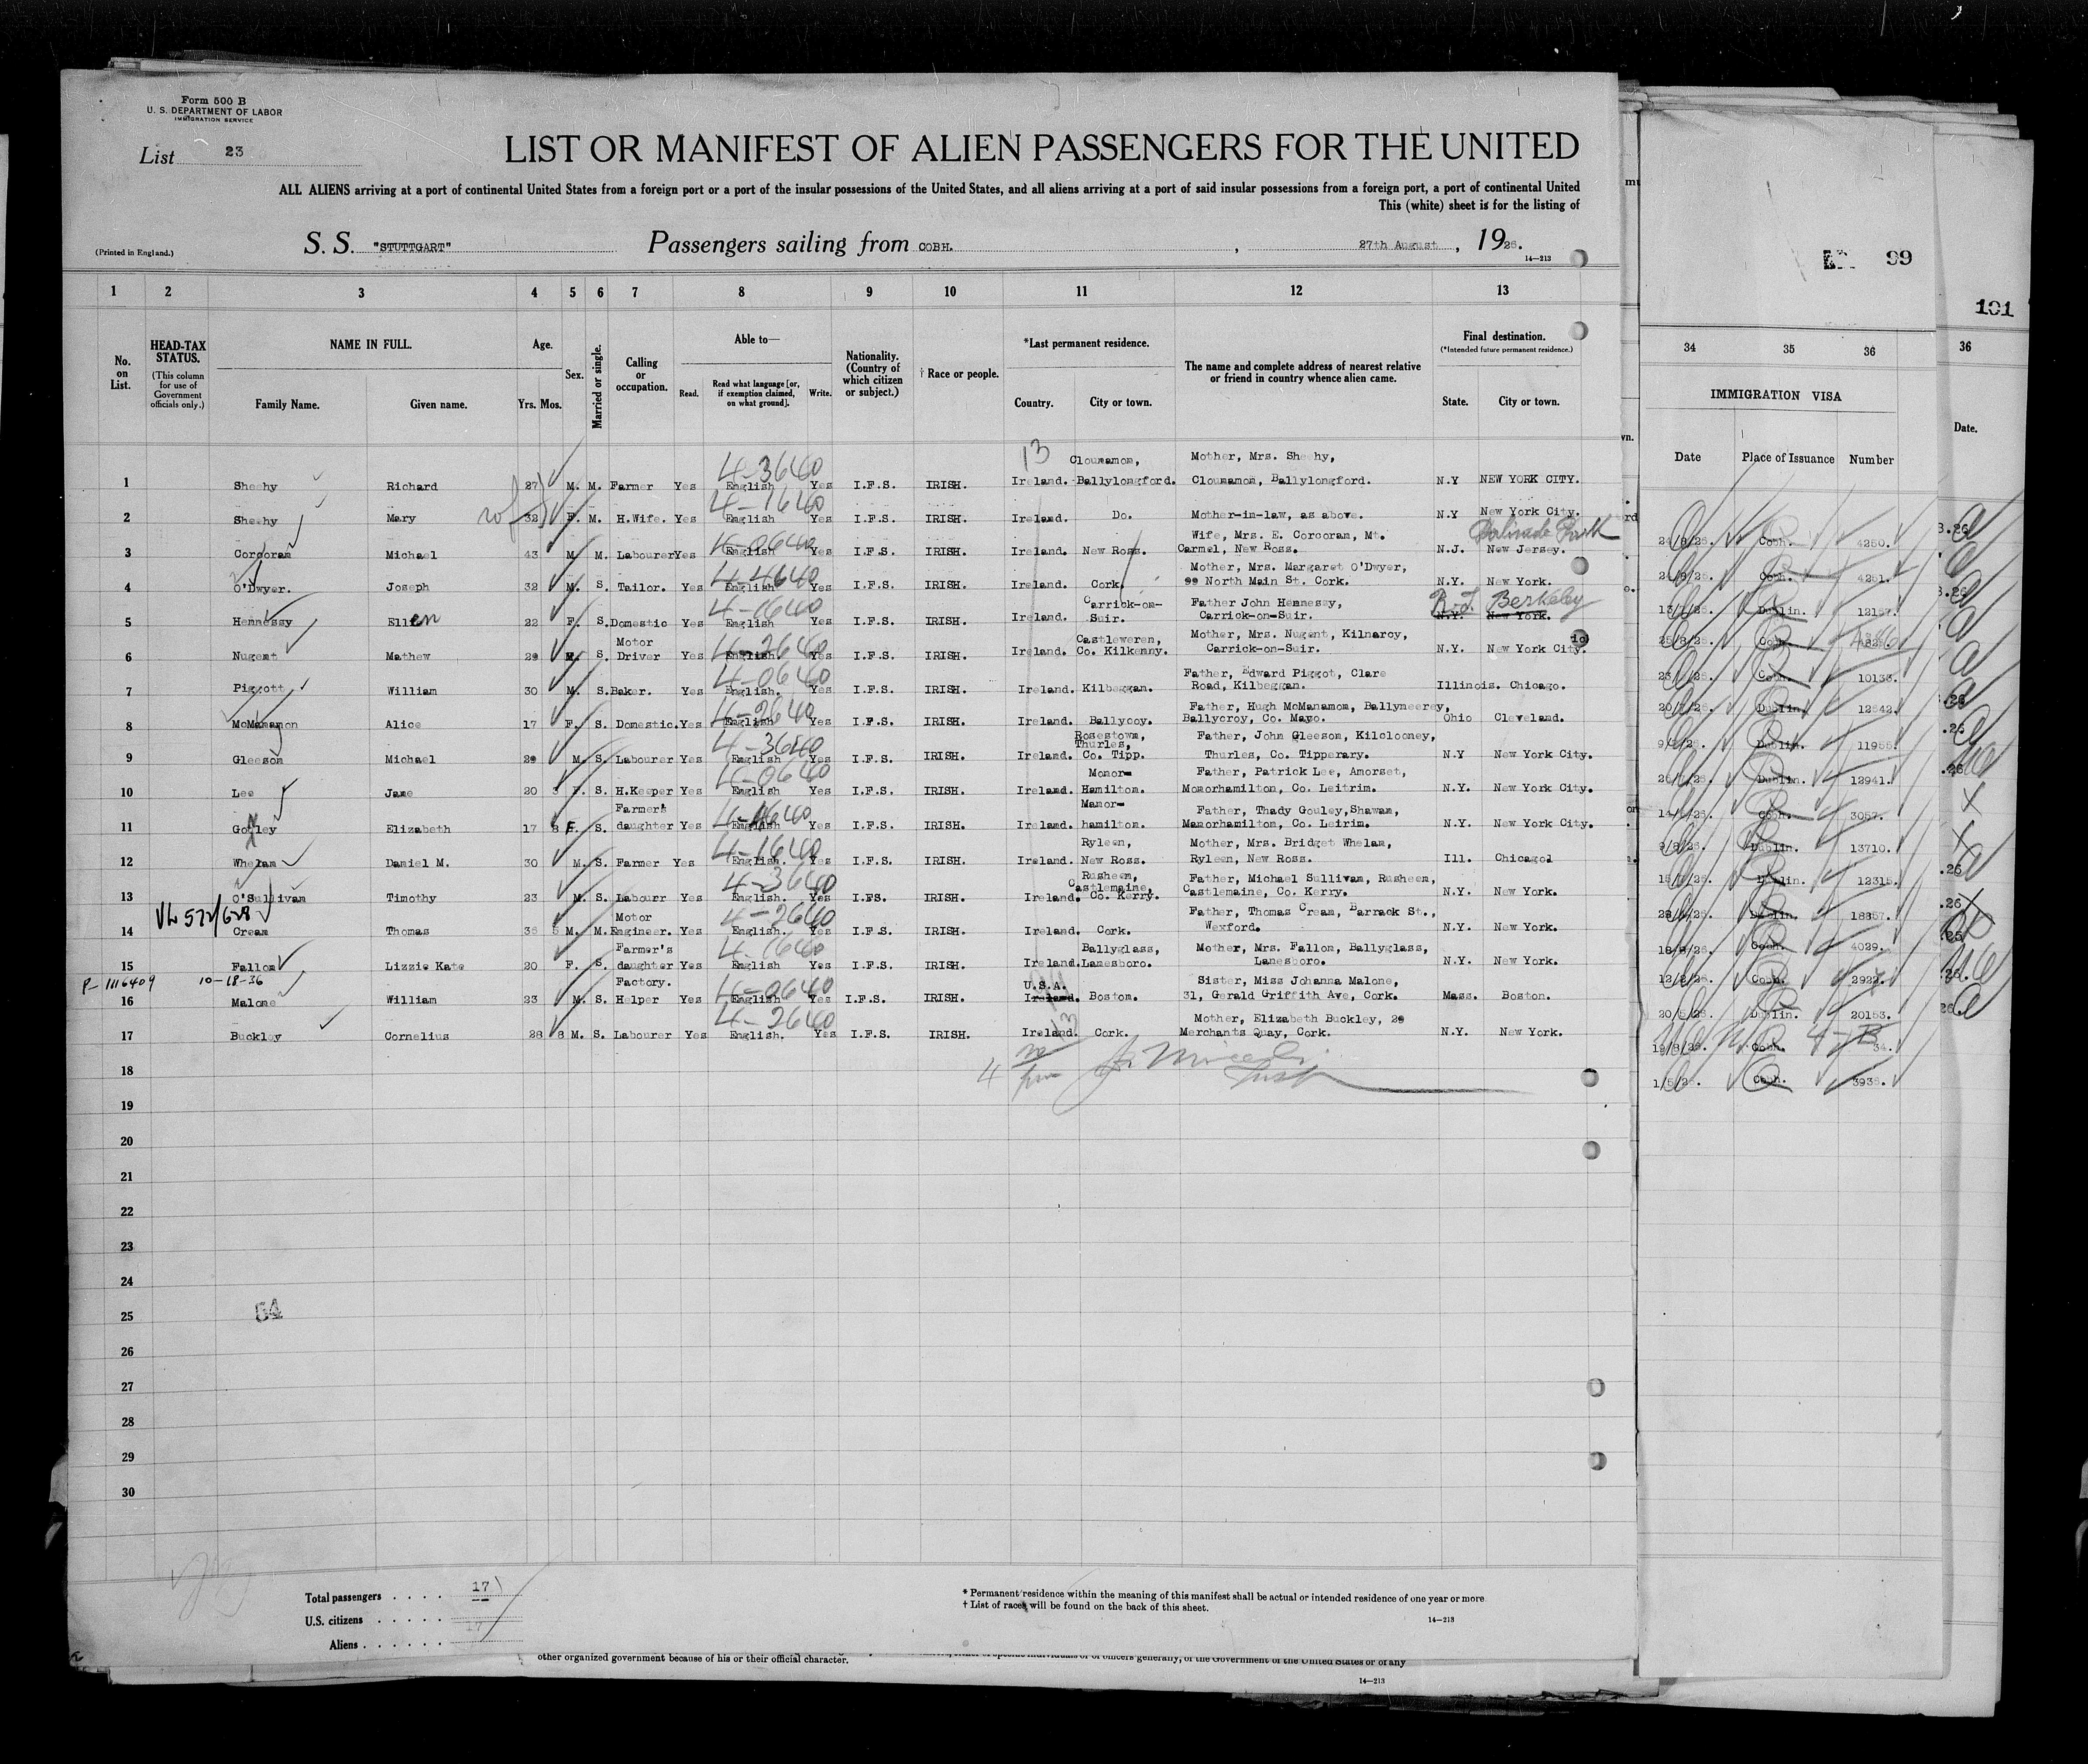 Form 500 B
U. S. DEPARTMENT OF LABOR
IMMIGRATION SERVICE
List 23
LIST OR MANIFEST OF ALIEN PASSENGERS FOR THE UNITED
ALL ALIENS arriving at a port of continental United States from a foreign port or a port of the insular possessions of the United States, and all aliens arriving at a port of said insular possessions from a foreign port, a port of continental United
This (white) sheet is for the listing of
(Printed in England.)
S. S. "STUTTGART" Passengers sailing from COBH. , 27th August , 1926.
14—213
99
101
1 2 3 4 5 6 7 8 9 10 11 12 13
34 35 36 36
No. on List.
HEAD-TAX STATUS.
(This column for use of Government officials only.)
NAME IN FULL.
Family Name. Given name.
Age.
Yrs. Mos.
Sex.
Married or single.
Calling or occupation.
Able to—
Read. Read what language [or, if exemption claimed, on what ground]. Write.
Nationality. (Country of which citizen or subject.)
† Race or people.
*Last permanent residence.
Country. City or town.
The name and complete address of nearest relative or friend in country whence alien came.
Final destination.
(*Intended future permanent residence.)
State. City or town.
IMMIGRATION VISA
Date Place of Issuance Number
Date.
13 Clounamon, Mother, Mrs. Sheehy,
4-3640
1 Sheehy Richard 27 M. M. Farmer Yes English Yes I.F.S. IRISH. Ireland. Ballylongford. Clounamon, Ballylongford. N.Y NEW YORK CITY.
4-1640
2 Sheehy Mary 32 F. M. H.Wife. Yes English Yes I.F.S. IRISH. Ireland. Do. Mother-in-law, as above. N.Y New York City.
Wife, Mrs. E. Corcoran, Mt.
3 Corcoran Michael 43 M M. Labourer Yes English Yes I.F.S IRISH. Ireland. New Ross. Carmel, New Ross. N.J. New Jersey.
4-4640 Mother, Mrs. Margaret O'Dwyer,
4 O'Dwyer. Joseph 32 M. S. Tailor. Yes English Yes I.F.S. IRISH. Ireland. Cork. North Main St. Cork. N.Y. New York.
4-1640 Carrick-on- Father John Hennessy, Berkeley
5 Hennessy Ellen 22 F. S. Domestic Yes English Yes I.F.S. IRISH. Ireland. Suir. Carrick-on-Suir. N.Y. New York.
Motor 4-2640 Castleweren, Mother, Mrs. Nugent, Kilnarcy,
6 Nugent Mathew 29 S. Driver Yes English. Yes I.F.S. IRISH. Ireland. Co. Kilkenny. Carrick-on-Suir. N.Y. New York City.
4-0640 Father, Edward Piggot, Clare
7 Piggott William 30 M. S. Baker. Yes English. Yes I.F.S. IRISH. Ireland. Kilbeggan. Road, Kilbeggan. Illinois. Chicago.
4-2640 Father, Hugh McManamon, Ballymeerey,
8 McManamon Alice 17 F. S. Domestic. Yes English Yes I.F.S. IRISH. Ireland. Ballycoy. Ballycroy, Co. Mayo. Ohio Cleveland.
4-3640 Rosestown, Thurles, Father, John Gleeson, Kilclooney,
9 Gleeson Michael 29 M. S. Labourer Yes English Yes I.F.S. IRISH. Ireland. Co. Tipp. Thurles, Co. Tipperary. N.Y New York City.
4-0640 Monor- Father, Patrick Lee, Amorset,
10 Lee Jane 20 3 F. S. H.Keeper Yes English Yes I.F.S. IRISH. Ireland. Hamilton. Monorhamilton, Co. Leitrim. N.Y. New York City.
Farmer's Manor- Father, Thady Gouley, Shawan,
11 Elizabeth 17 8 F. S. daughter Yes English Yes I.F.S. IRISH. Ireland. hamilton. Manorhamilton, Co. Leirim. N.Y. New York City.
4-1640 Ryleen, Mother, Mrs. Bridget Whelan,
12 Whelan Daniel M. 30 M. S. Farmer Yes English. Yes I.F.S. IRISH. Ireland. New Ross. Ryleen, New Ross. Ill. Chicago.
4-3640 Rusheen, Castlemaine, Father, Michael Sullivan, Rusheen,
13 O'Sullivan Timothy 23 M. S. Labourr Yes English. Yes I.FS. IRISH. Ireland. Co. Kerry. Castlemaine, Co. Kerry. N.Y. New York.
Motor 4-2640 Father, Thomas Crean, Barrack St.,
14 Crean Thomas 36 5 M. M. Engineer. Yes English. Yes I.F.S IRISH. Ireland. Cork. Wexford. N.Y. New York.
Farmer's 4-1640 Ballyglass, Mother, Mrs. Fallon, Ballyglass,
15 Fallon Lizzie Kate 20 F. S. daughter Yes English Yes I.F.S. IRISH. Ireland. Lanesboro. Lanesboro. N.Y. New York.
P-1116409 10-18-36
Factory. 4-0640 U.S.A. Sister, Miss Johanna Malone,
16 Malone William 23 M. S. Helper Yes English Yes I.F.S. IRISH. Ireland. Boston. 31, Gerald Griffith Ave, Cork. Mass. Boston.
4-2640 13 Mother, Elizabeth Buckley, 29
17 Buckley Cornelius 28 8 M. S. Labourer Yes English. Yes I.F.S. IRISH. Ireland. Cork. Merchants Quay, Cork. N.Y. New York.
18
19
20
21
22
23
24
25
26
27
28
29
30
54
24/8/26. Cobh. 4250.
24/8/26. Cobh. 4251.
Dublin. 12157.
25/8/26. Cobh.
Cobh. 10133.
Dublin. 12542.
Dublin. 11955.
Dublin. 12941.
Cobh. 3057.
Dublin. 13710.
Dublin. 12315.
Dublin. 18857.
Cobh. 4029.
Cobh. 2929.
20/5/26. Dublin. 20153.
19/8/26. Cobh. 34.
1/5/26. Cobh. 3936.
Total passengers . . . . 17
U.S. citizens . . . . .
Aliens . . . . . . 17
* Permanent residence within the meaning of this manifest shall be actual or intended residence of one year or more
† List of races will be found on the back of this sheet.
14—213
other organized government because of his or their official character.
of the Government of the United States or of any
14—213